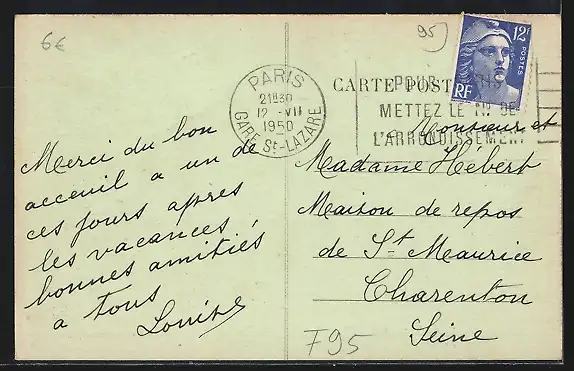 6€
95
12F
POSTES
RF
PARIS
21H30
12 -VII
1950
GARE St-LAZARE
CARTE POSTALE
POUR PARIS
METTEZ LE N° DE
L'ARRONDISSEMENT
Merci du bon
acceuil a un de
ces jours apres
les vacances,
bonnes amitiés
a tous
Louise
Monsieur et
Madame Hébert
Maison de repos
de St Maurice
Charenton
Seine
F95